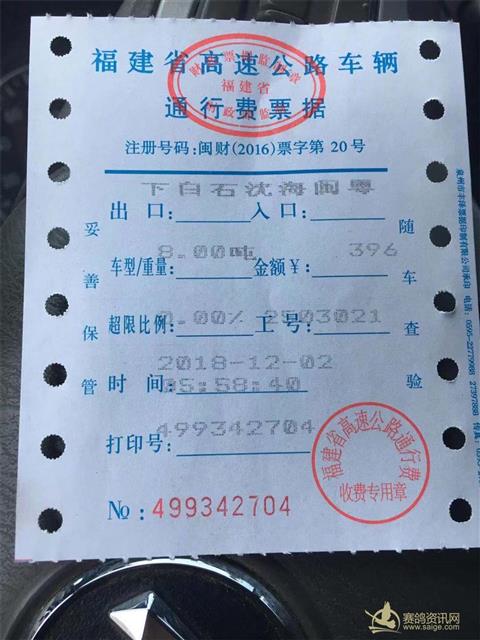 福建省高速公路车辆
通行费票据
财政票据监制章
福建省
财政部监制
注册号码:闽财(2016)票字第20号
下白石沈海闽粤
出口: 入口:
8.00吨 396
车型/重量: 金额¥:
0.00% 2503021
超限比例: 工号:
2018-12-02
时间: 05:58:40
打印号: 499342704
№: 499342704
妥善保管
随车查验
泉州市丰泽票据印制有限公司承印 电话: 0595-22779988 27397888
福建省高速公路通行费
收费专用章
赛鸽资讯网
www.saige.com